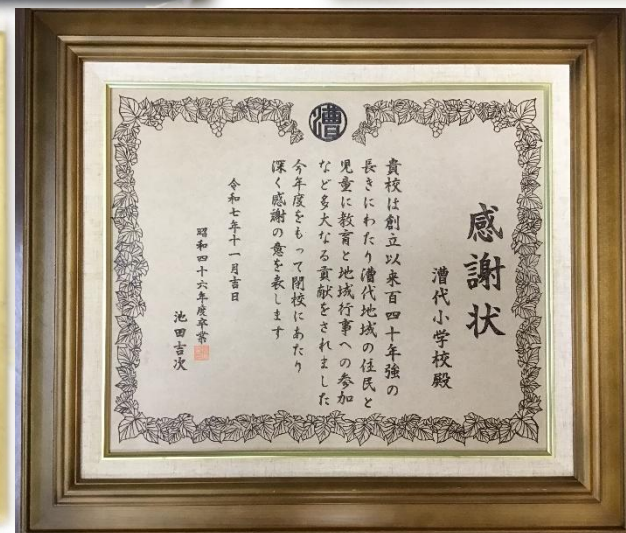 漕
感謝状
漕代小学校殿
貴校は創立以来百四十年強の
長きにわたり漕代地域の住民と
児童に教育と地域行事への参加
など多大なる貢献をされました
今年度をもって閉校にあたり
深く感謝の意を表します
令和七年十一月吉日
昭和四十六年度卒業
池田吉次